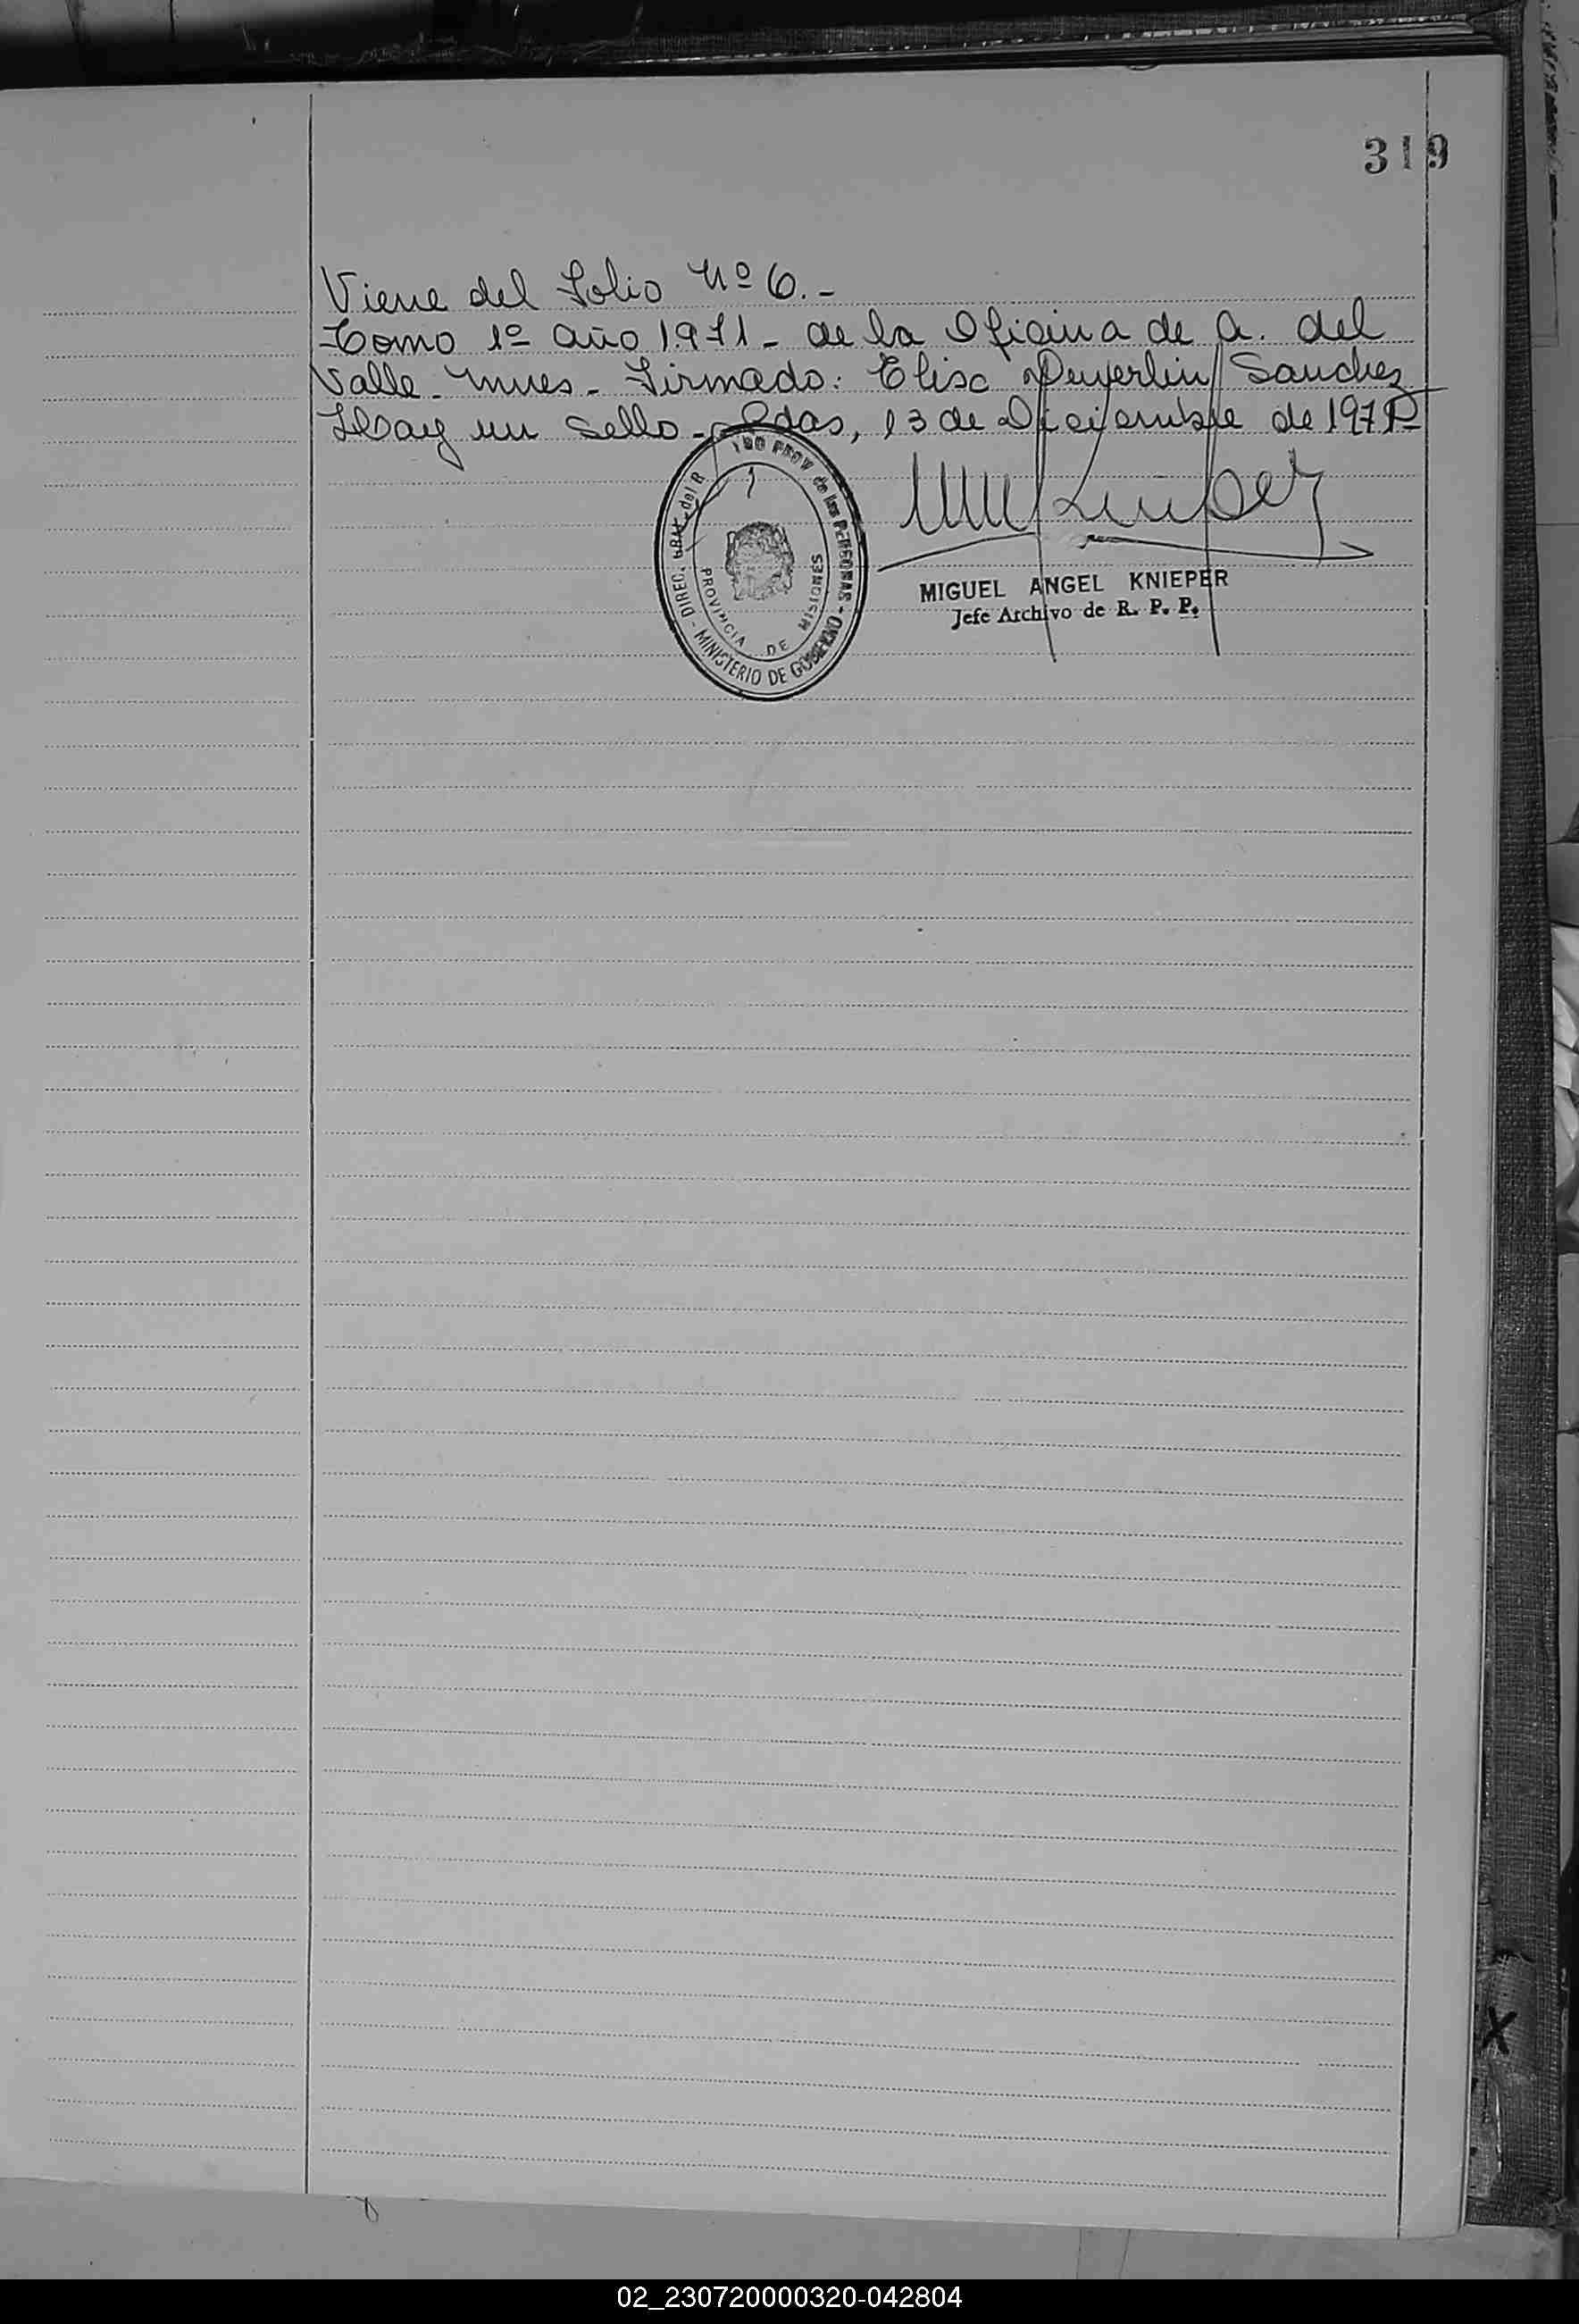 319
Viene del Folio Nº 6.-
Tomo 1º año 1971 - de la Oficina de A. del
Valle - Mnes. - Firmado: Elisa Sanchez
Hay un sello - Pdas, 13 de Diciembre de 197
DIREC. GRAL. del R PROV de las PERSONAS - MINISTERIO DE GOBIERNO -
PROVINCIA DE MISIONES
MIGUEL ANGEL KNIEPER
Jefe Archivo de R. P. P.
X
02_230720000320-042804